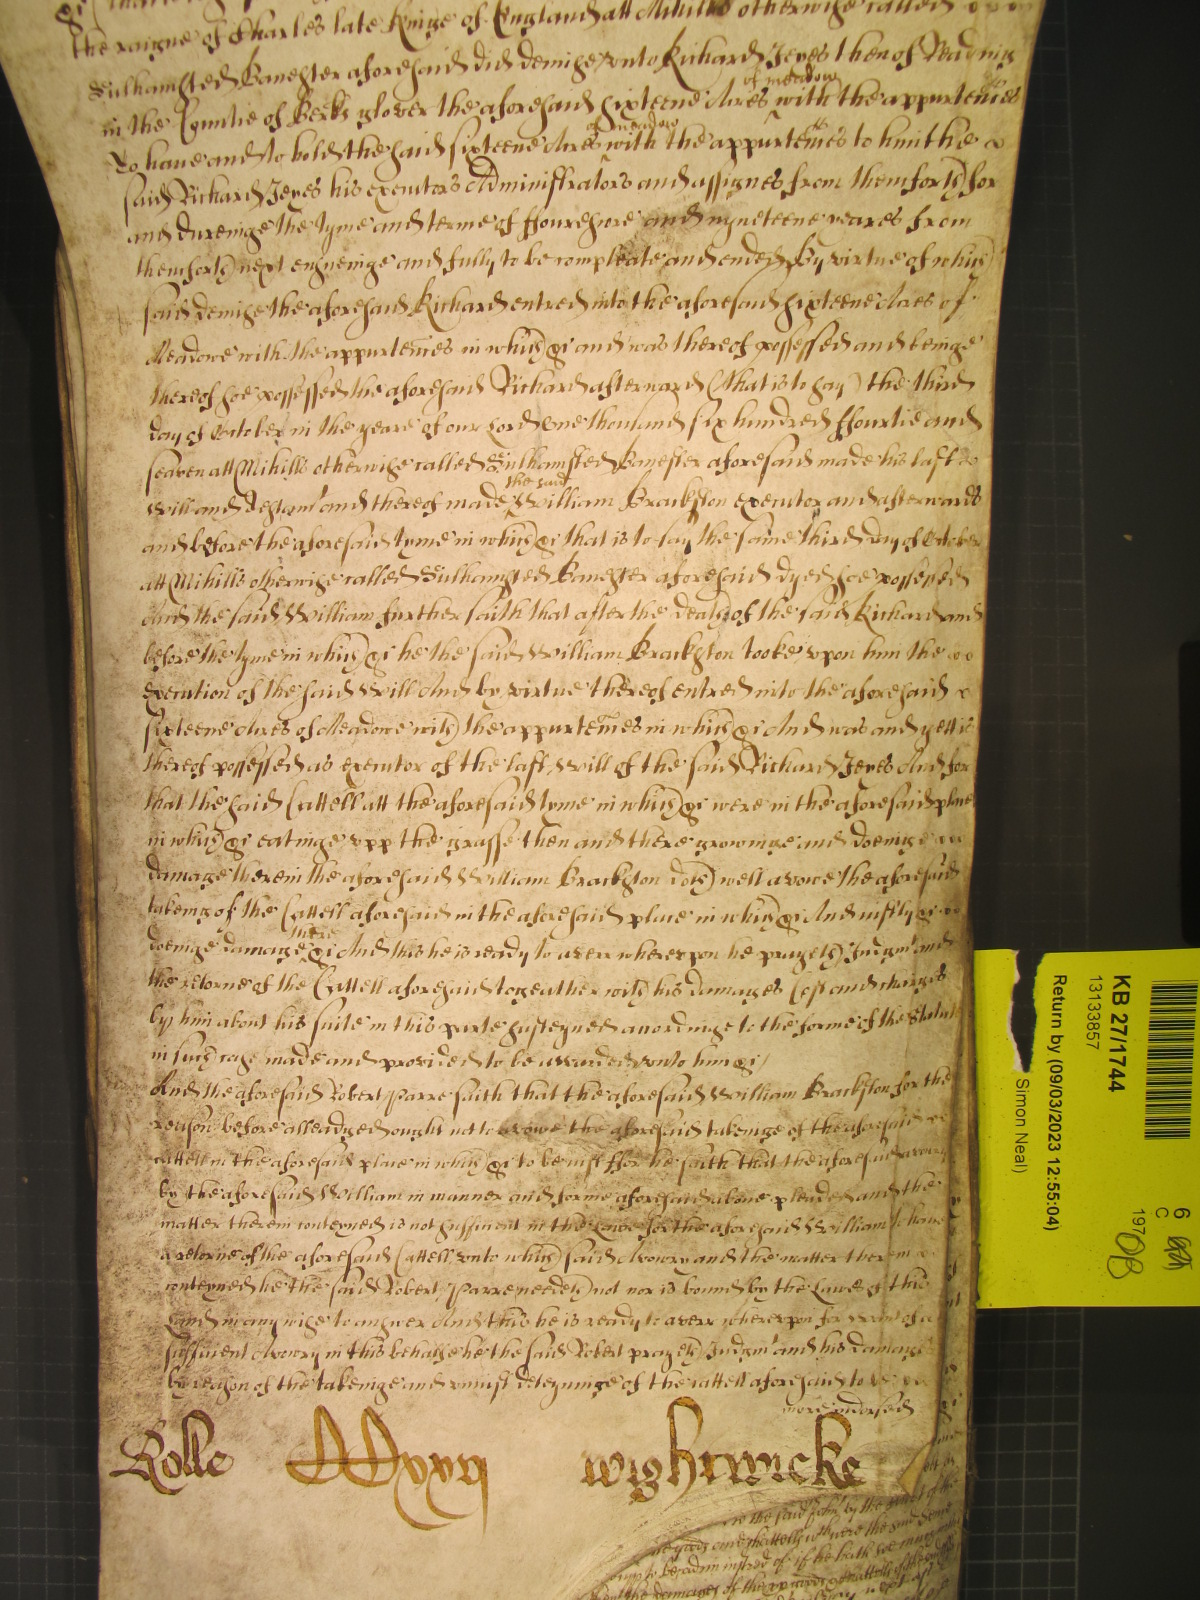 the raigne of Charles late Kinge of England att Mihills otherwise called
Sulhamsted Banester aforesaid did demise vnto Richard Jeyes then of Readinge
in the Countie of Berks glover the aforesaid sixteene Acres of meadow with the appurtenncs
To haue and to hold the said sixteene Acres of meadow with the appurtenncs to him the
said Richard Jeyes his executors Administrators and assignes from thenceforth for
and dureinge the tyme and terme of ffourescore and nyneteene yeares from
thenceforth next ensueinge and fully to be compleate and ended By virtue of which
said demise the aforesaid Richard entred into the aforesaid sixteene Acres of
Meadowe with the appurtenncs in which &c and was thereof possessed and beinge
thereof soe possessed the aforesaid Richard afterward (that is to say) the third
day of October in the yeare of our Lord One thousand six hundred ffourtie and
seaven att Mihills otherwise called Sulhamsted Banester aforesaid made his last
Will and Testamt and thereof made the said William Brackston executor and afterwards
and before the aforesaid tyme in which &c that is to say the same third day of October
att Mihills otherwise called Sulhamsted Banester aforesaid dyed soe possessed
And the said William further saith that after the death of the said Richard and
before the tyme in which &c he the said William Brackston tooke vpon him the
execution of the said Will And by virtue thereof entred into the aforesaid
sixteene Acres of Meadowe with the appurtenncs in which &c And was and yett is
thereof possessed as executor of the last Will of the said Richard Jeyes And for
that the said Cattell att the aforesaid tyme in which &c were in the aforesaid place
in which &c eatinge vpp the grasse then and there growinge and doeinge
damage therein the aforesaid William Brackston doth well avowe the aforesaid
takeing of the Cattell aforesaid in the aforesaid place in which &c And iustly &c
doeinge damage there &c And this he is ready to averr wherevpon he prayeth Judgmt and
the retorne of the Cattell aforesaid togeather with his damages Cost and charges
by him about his suite in this parte susteyned accordinge to the forme of the Statute
in such case made and provided to be awarded vnto him &c
And the aforesaid Robert Parre saith that the aforesaid William Brackston for the
reason before alleadged ought not to avowe the aforesaid takeinge of the aforesaid
cattell in the aforesaid place in which &c to be iust ffor he saith that the aforesaid avowry
by the aforesaid William in manner and forme aforesaid aboue pleaded and the
matter therein conteyned is not sufficient in the Lawe for the aforesaid William to haue
a retorne of the aforesaid Cattell vnto which said Avowry and the matter therein
conteyned he the said Robert Parre needeth not nor is bound by the Lawes of this
Land in any wise to answer And this he is ready to averr wherevpon for want of a
sufficient Avowry in this behalfe he the said Robert prayeth Judgmt and his damages
by reason of the takeinge and vniust deteyninge of the cattell aforesaid to be
more endorsed
Rolle Wyn wightwicke
the said John by the
goods and chattells
damages of the
KB 27/1744
13133857
Return by (09/03/2023 12:55:04)
Simon Neal)
6
C
197